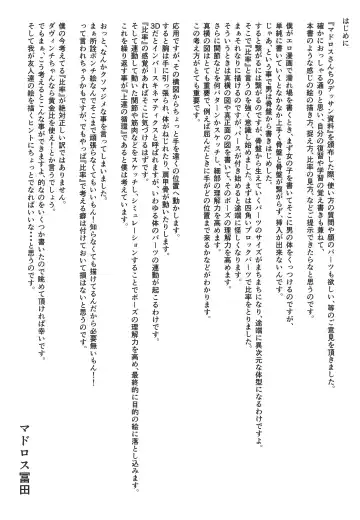 はじめに
『マドロスさんちのデッサン資料』を頒布した際、使い方の質問や顔のパーツも欲しい、等のご意見を頂きました。
確かにおっしゃる通りと思い、自分の復習や学習の覚え書きも兼ねて、
本書のような感じの絵の描き方、選び方、比率の見方、などなどとして出来たらなと思うのです。
僕がエロ漫画で濡れ場を書くとき、まず女の子を書いてそこに男の体をくっつけるのですが、
男の骨盤を無視していくとなかなか上手く骨盤と骨盤が繋がらず、挿入が出来ないんです。
じゃあ、という事で男は骨盤から書き始めてみました。
すると繋がるには繋がるのですが、骨盤から生えていくパーツのサイズがまちまちになり、途端に異次元な体型になるわけですよ。
それなりに描けていると思っていたものが、途端に描けなくなる。
まさに『比率』と言うのを強く意識し始めました。まずは四角いブロックパーツで比率をとりました。
さらに関節などを何パターンかスケッチし、細部の理解力を高めます。
次に真横の図や真正面の図を書いて、そのポーズの理解力を高めます。
真横の図はとても重要で、例えば屈んだときに手がどの位置まで来るかなどがわかり、
この考え方がとても重要です。
応用ですが、その横図からちょっと手を遠くの位置へ動かします。
すると腕は手に引っ張られ、体がねじれたり、肩甲骨が動いたりします。
3Dでインバースキネマティクスと呼ばれますが、いわゆる体のパーツの連動が起こるわけです。
そして連動して動いた関節や筋肉などをスケッチし、シミュレーションすることでポーズの理解力を高め、最終的に目的の絵に落とし込みます。
『比率』の感覚があればそこに気づけるはずです。
これを繰り返す事が『上達の循環』であると僕は考えています。
おっと、なんかクソマジメな事を言ってしまいました。
まぁ所詮ポンチ絵なんでそこまで頑張らなくてもいいもん!知らなくても描けてるんだから必要無いもん!!
って言われちゃそうですが、でもやっぱ『比率』で考える癖は付けておいて損はないと思うのです。
僕の今考えてる『比率』が絶対正しい訳ではありません。
ダヴィンチちゃんなら黄金比を使え!とか言うでしょう。
でもまぁ、こう考えるとこんな事ができますよ、的なのをいくつか書いたので眺めて頂ければ幸いです。
そして我が友人達の絵を描くヒントにちょっとでもなればいいな・・・と思うのです。
マドロス冨田